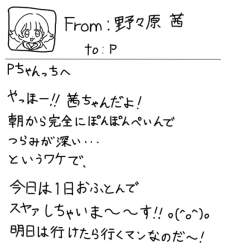 From: 野々原 茜
to: P
Pちゃんっちへ
やっほー!! 茜ちゃんだよ!
朝から完全にぽんぽんぺいんで
つらみが深い…
というワケで、
今日は1日おふとんで
スヤァしちゃいま〜〜す!! o(^o^)o
明日は行けたら行くマンなのだ〜!